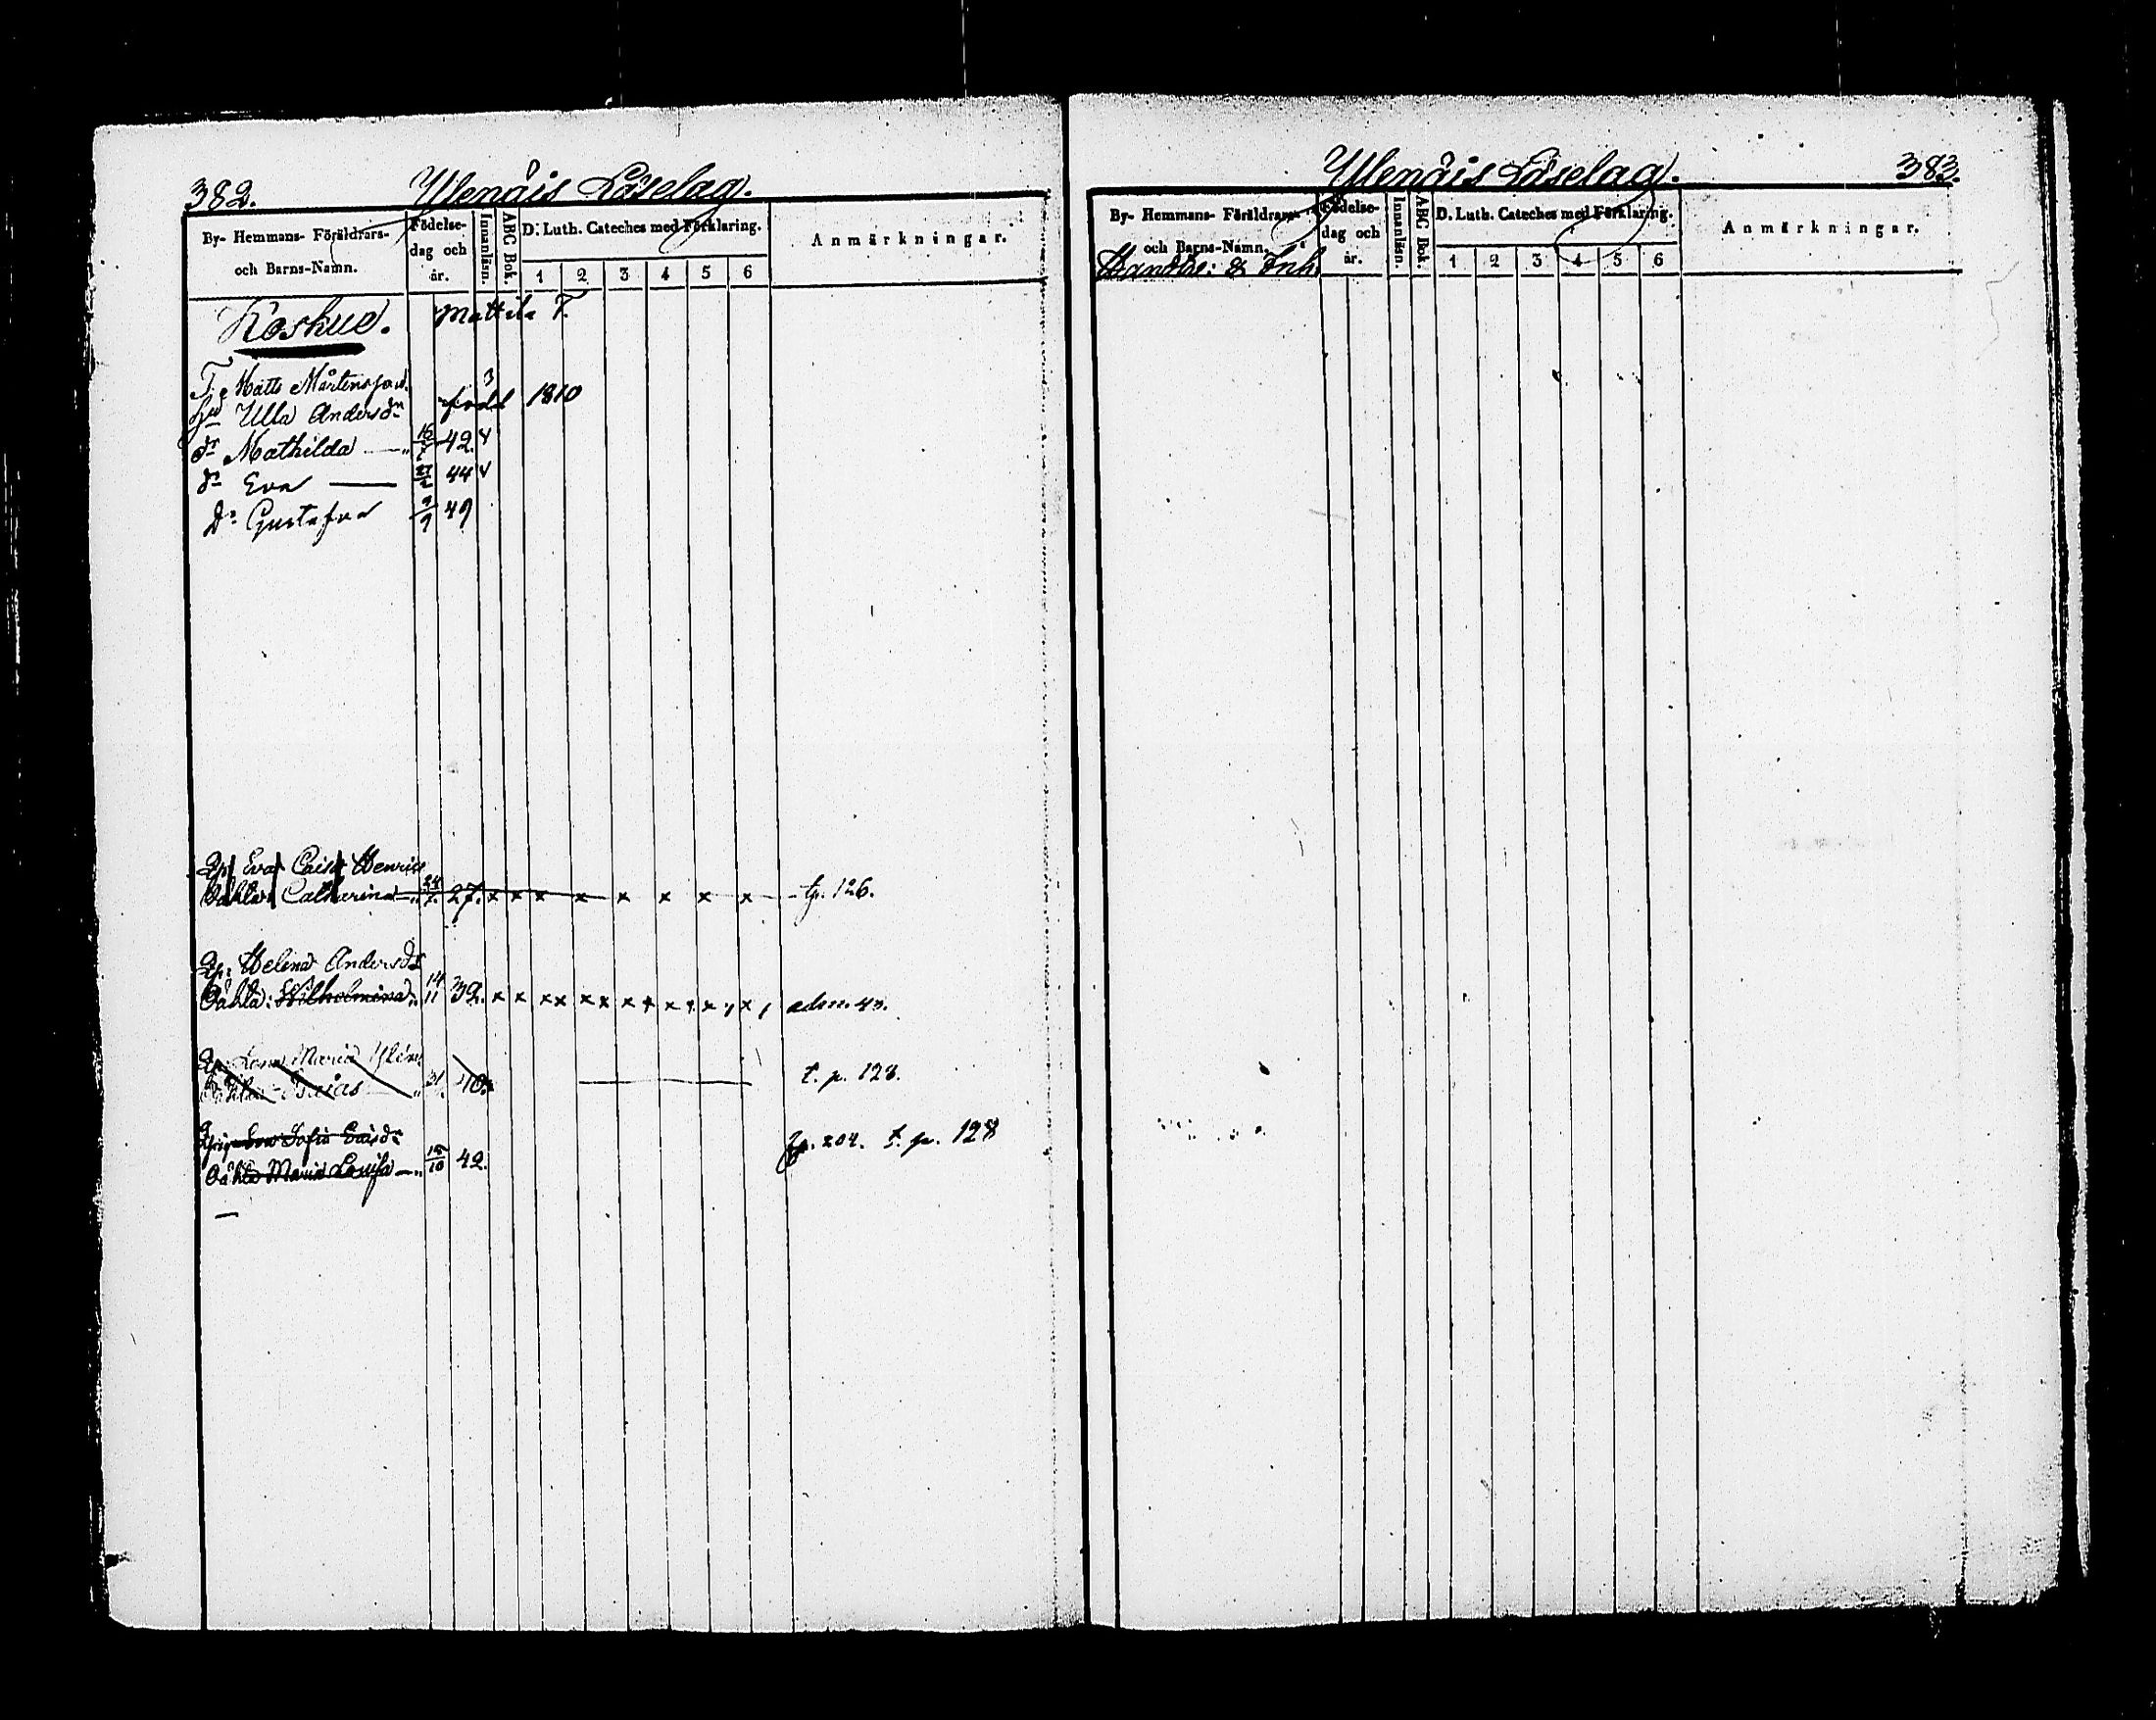 382.
Ylenäis Läselag.
By- Hemmans- Föräldrars- och Barns-Namn.
Födelse- dag och år.
Innanläsn.
ABC Bok.
D: Luth. Cateches med Förklaring.
1 2 3 4 5 6
Anmärkningar.
Koskue. Mattila T.
T. Matts Mårtensson 3
Hu Ulla Andersdr född 1810
dr Mathilda — " 16/ 42.
dr Eva — 27/2 44
Dr Gustafva 9/9 49
Qp: Eva Caisa Henrics
Oäkta: Catharina — " 24/ 27. x x x x x x x x tp. 126.
Qp: Helena Andersdr
Oäkta: Wilhelmina " 14/11 32. x x x x x x x x x x x x x adm. 43.
Qp: Lena Maria
Oäkta Isaias " 31/ 40. t. p. 128.
Sofia
Oäkta Maria Lovisa — " 18/10 42. p. 204. t. p. 128
Ylenäis Läselag.
383.
By- Hemmans- Föräldrars- och Barns-Namn.
Födelse- dag och år.
Innanläsn.
ABC Bok.
D. Luth. Cateches med Förklaring.
1 2 3 4 5 6
Anmärkningar.
& Inh.